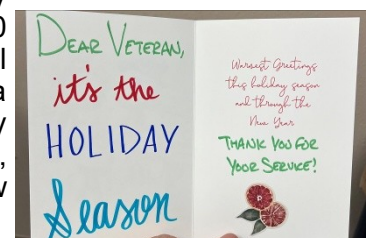 DEAR VETERAN,
it's the
HOLIDAY
Season
Warmest Greetings
this holiday season
and through the
New Year
THANK YOU FOR
YOUR SERVICE!